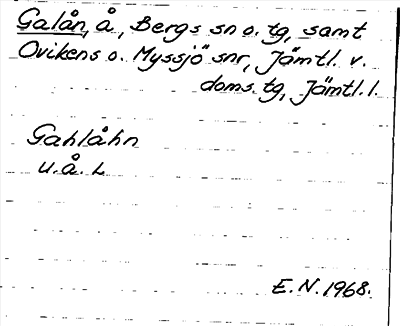 Galån, å, Bergs sn o. tg, samt
Ovikens o. Myssjö snr, Jämtl. v.
doms. tg, Jämtl. l.
Gahlåhn
u.å. L
E.N. 1968.